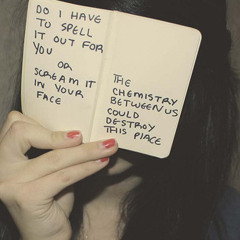 DO I HAVE
TO SPELL
IT OUT FOR
YOU
OR
SCREAM IT
IN YOUR
FACE
THE
CHEMISTRY
BETWEEN US
COULD
DESTROY
THIS PLACE